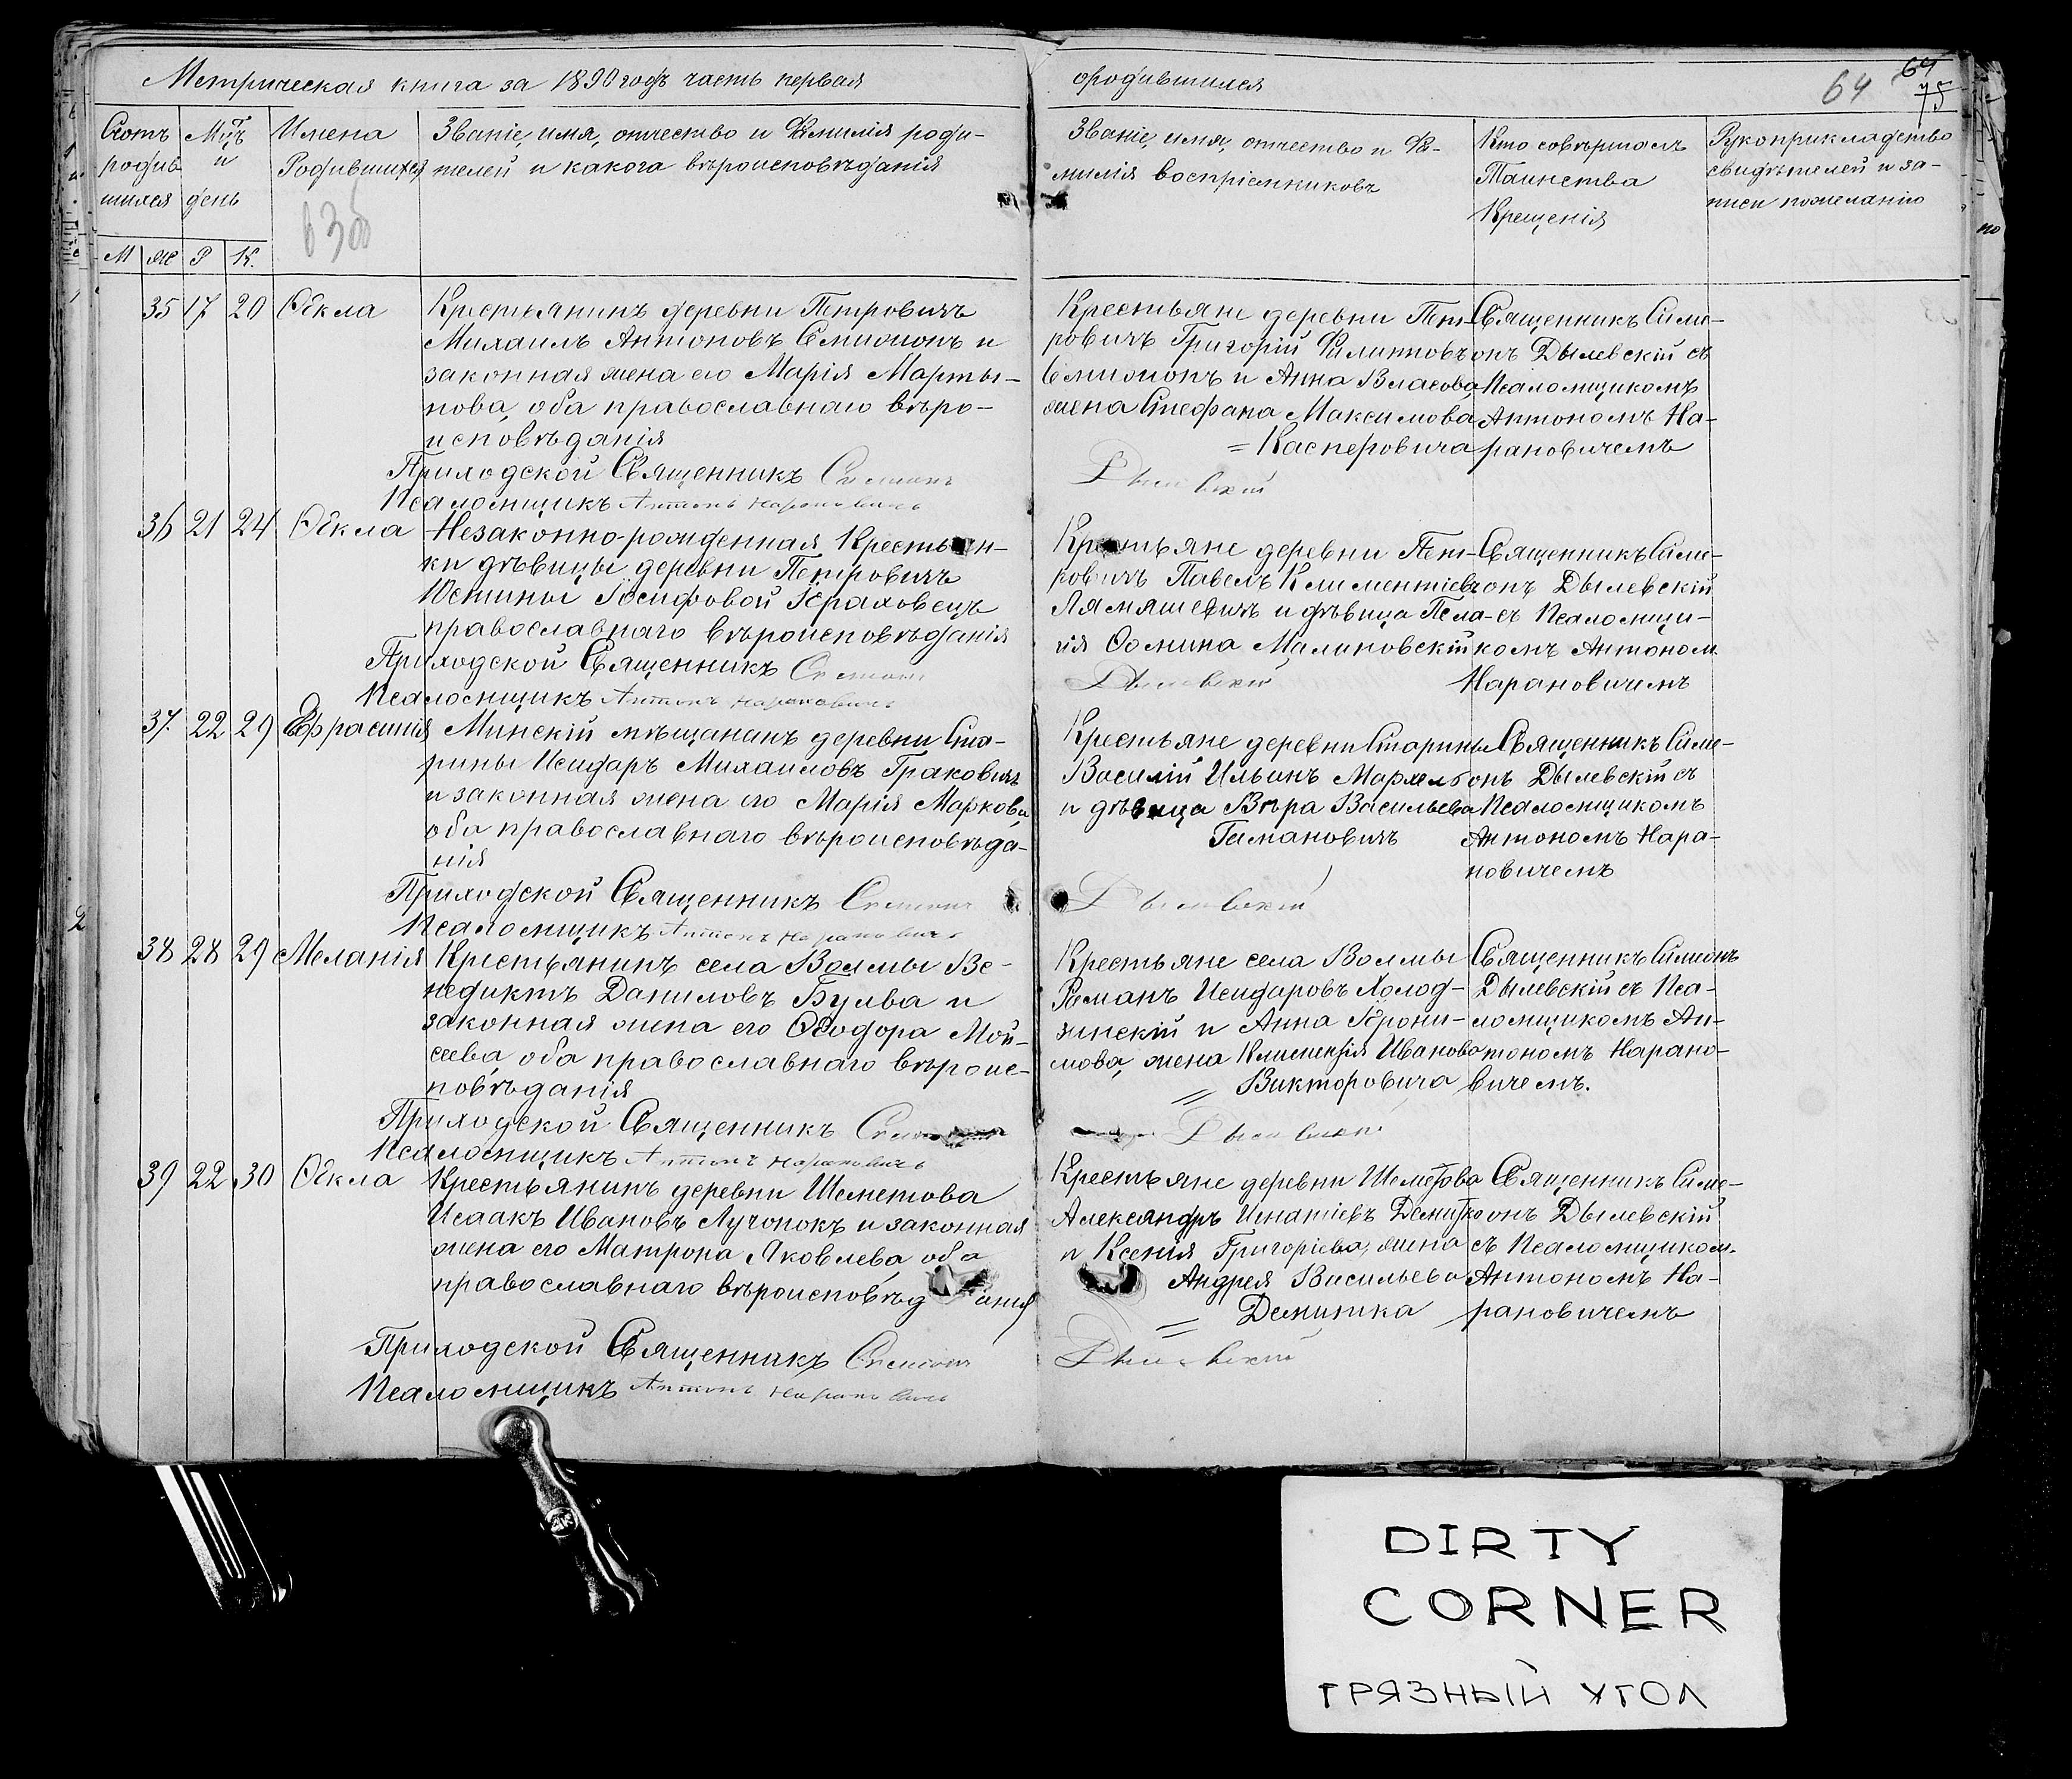 Метрическая книга за 1890 годъ часть первая
ородившихся
64
64
75
Счотъ родив шихся
Мцъ и день
Имена Родившихся
Званіе, имя, отчество и Фамилія роди-
телей и какога вѣроисповѣданія
Званіе, имя, отчество и Фа-
милія воспріемниковъ
Кто совершалъ
Таинства
Крещенія
Рукоприкладство
свидѣтелей и за-
писи пожеланію
М Ж Р К.
35 17 20 Ѳекла
Крестьянинъ деревни Петровичъ
Михаилъ Антоновъ Семионокъ и
законная жена его Марія Марты-
нова, оба православнаго вѣро-
исповѣданія
Приходской Священникъ Симеонъ Дылевскій
Псаломщикъ Антонъ Нарановичъ
Крестьяне деревни Пет-
ровичъ Григорій Филиповъ
Семионокъ и Анна Власова,
жена Стефана Максимова
= Касперовича
Священникъ Симе-
онъ Дылевскій съ
Псаломщикомъ
Антономъ На-
рановичемъ
36 21 24 Ѳекла
Незаконно-рожденная Крестьян-
ки дѣвицы деревни Петровичъ
Юстины Іосифовой Гераховецъ
православнаго вѣроисповѣданія
Приходской Священникъ Симеонъ Дылевскій
Псаломщикъ Антонъ Нарановичъ
Крестьяне деревни Пет-
ровичъ Павелъ Климентіевъ
Лямяшевичъ и дѣвица Пела-
гія Ѳомина Малиновскій
Священникъ Симе-
онъ Дылевскій
съ Псаломщи-
комъ Антоном
Нарановичемъ
37. 22 29 Ефрасинія
Минскій мѣщананъ деревни Ста-
рины Исидаръ Михаиловъ Граковичъ
и законная жена его Марія Маркова,
оба православнаго вѣроисповѣда-
нія
Приходской Священникъ Симеонъ Дылевскій
Псаломщикъ Антонъ Нарановичъ
Крестьяне деревни Старины
Василій Ильинъ
и дѣвица Вѣра Васильева
Гамановичъ
Священникъ Симе-
онъ Дылевскій съ
Псаломщикомъ
Антономъ Нара-
новичемъ
38 28 29 Меланія
Крестьянинъ села Волмы Ве-
недиктъ Даниловъ Булва и
законная жена его Ѳеодора Мой-
сеева, оба православнаго вѣроис-
повѣданія
Приходской Священникъ Симеонъ Дылевскій
Псаломщикъ Антонъ Нарановичъ
Крестьяне села Волмы
Раманъ Исидаровъ Холод-
зинскій и Анна Ерони-
мова, жена Климентія Иванова
= Викторовича
Священникъ Симеонъ
Дылевскій съ Пса-
ломщикомъ Ан-
тономъ Нарано-
вичемъ.
39 22 30 Ѳекла
Крестьянинъ деревни Шеметова
Исаакъ Ивановъ Лучонокъ и законная
жена его Матрона Яковлева, оба
православнаго вѣроисповѣданія
Приходской Священникъ Симеонъ Дылевскій
Псаломщикъ Антонъ Нарановичъ
Крестьяне деревни Шеметова
Александръ Игнатіевъ Демитко
и Ксенія Григоріева, жена
Андрея Васильева
= Демитка
Священникъ Симе-
онъ Дылевскій
съ Псаломщиком.
Антономъ На-
рановичемъ
DIRTY
CORNER
ГРЯЗНЫЙ УГОЛ